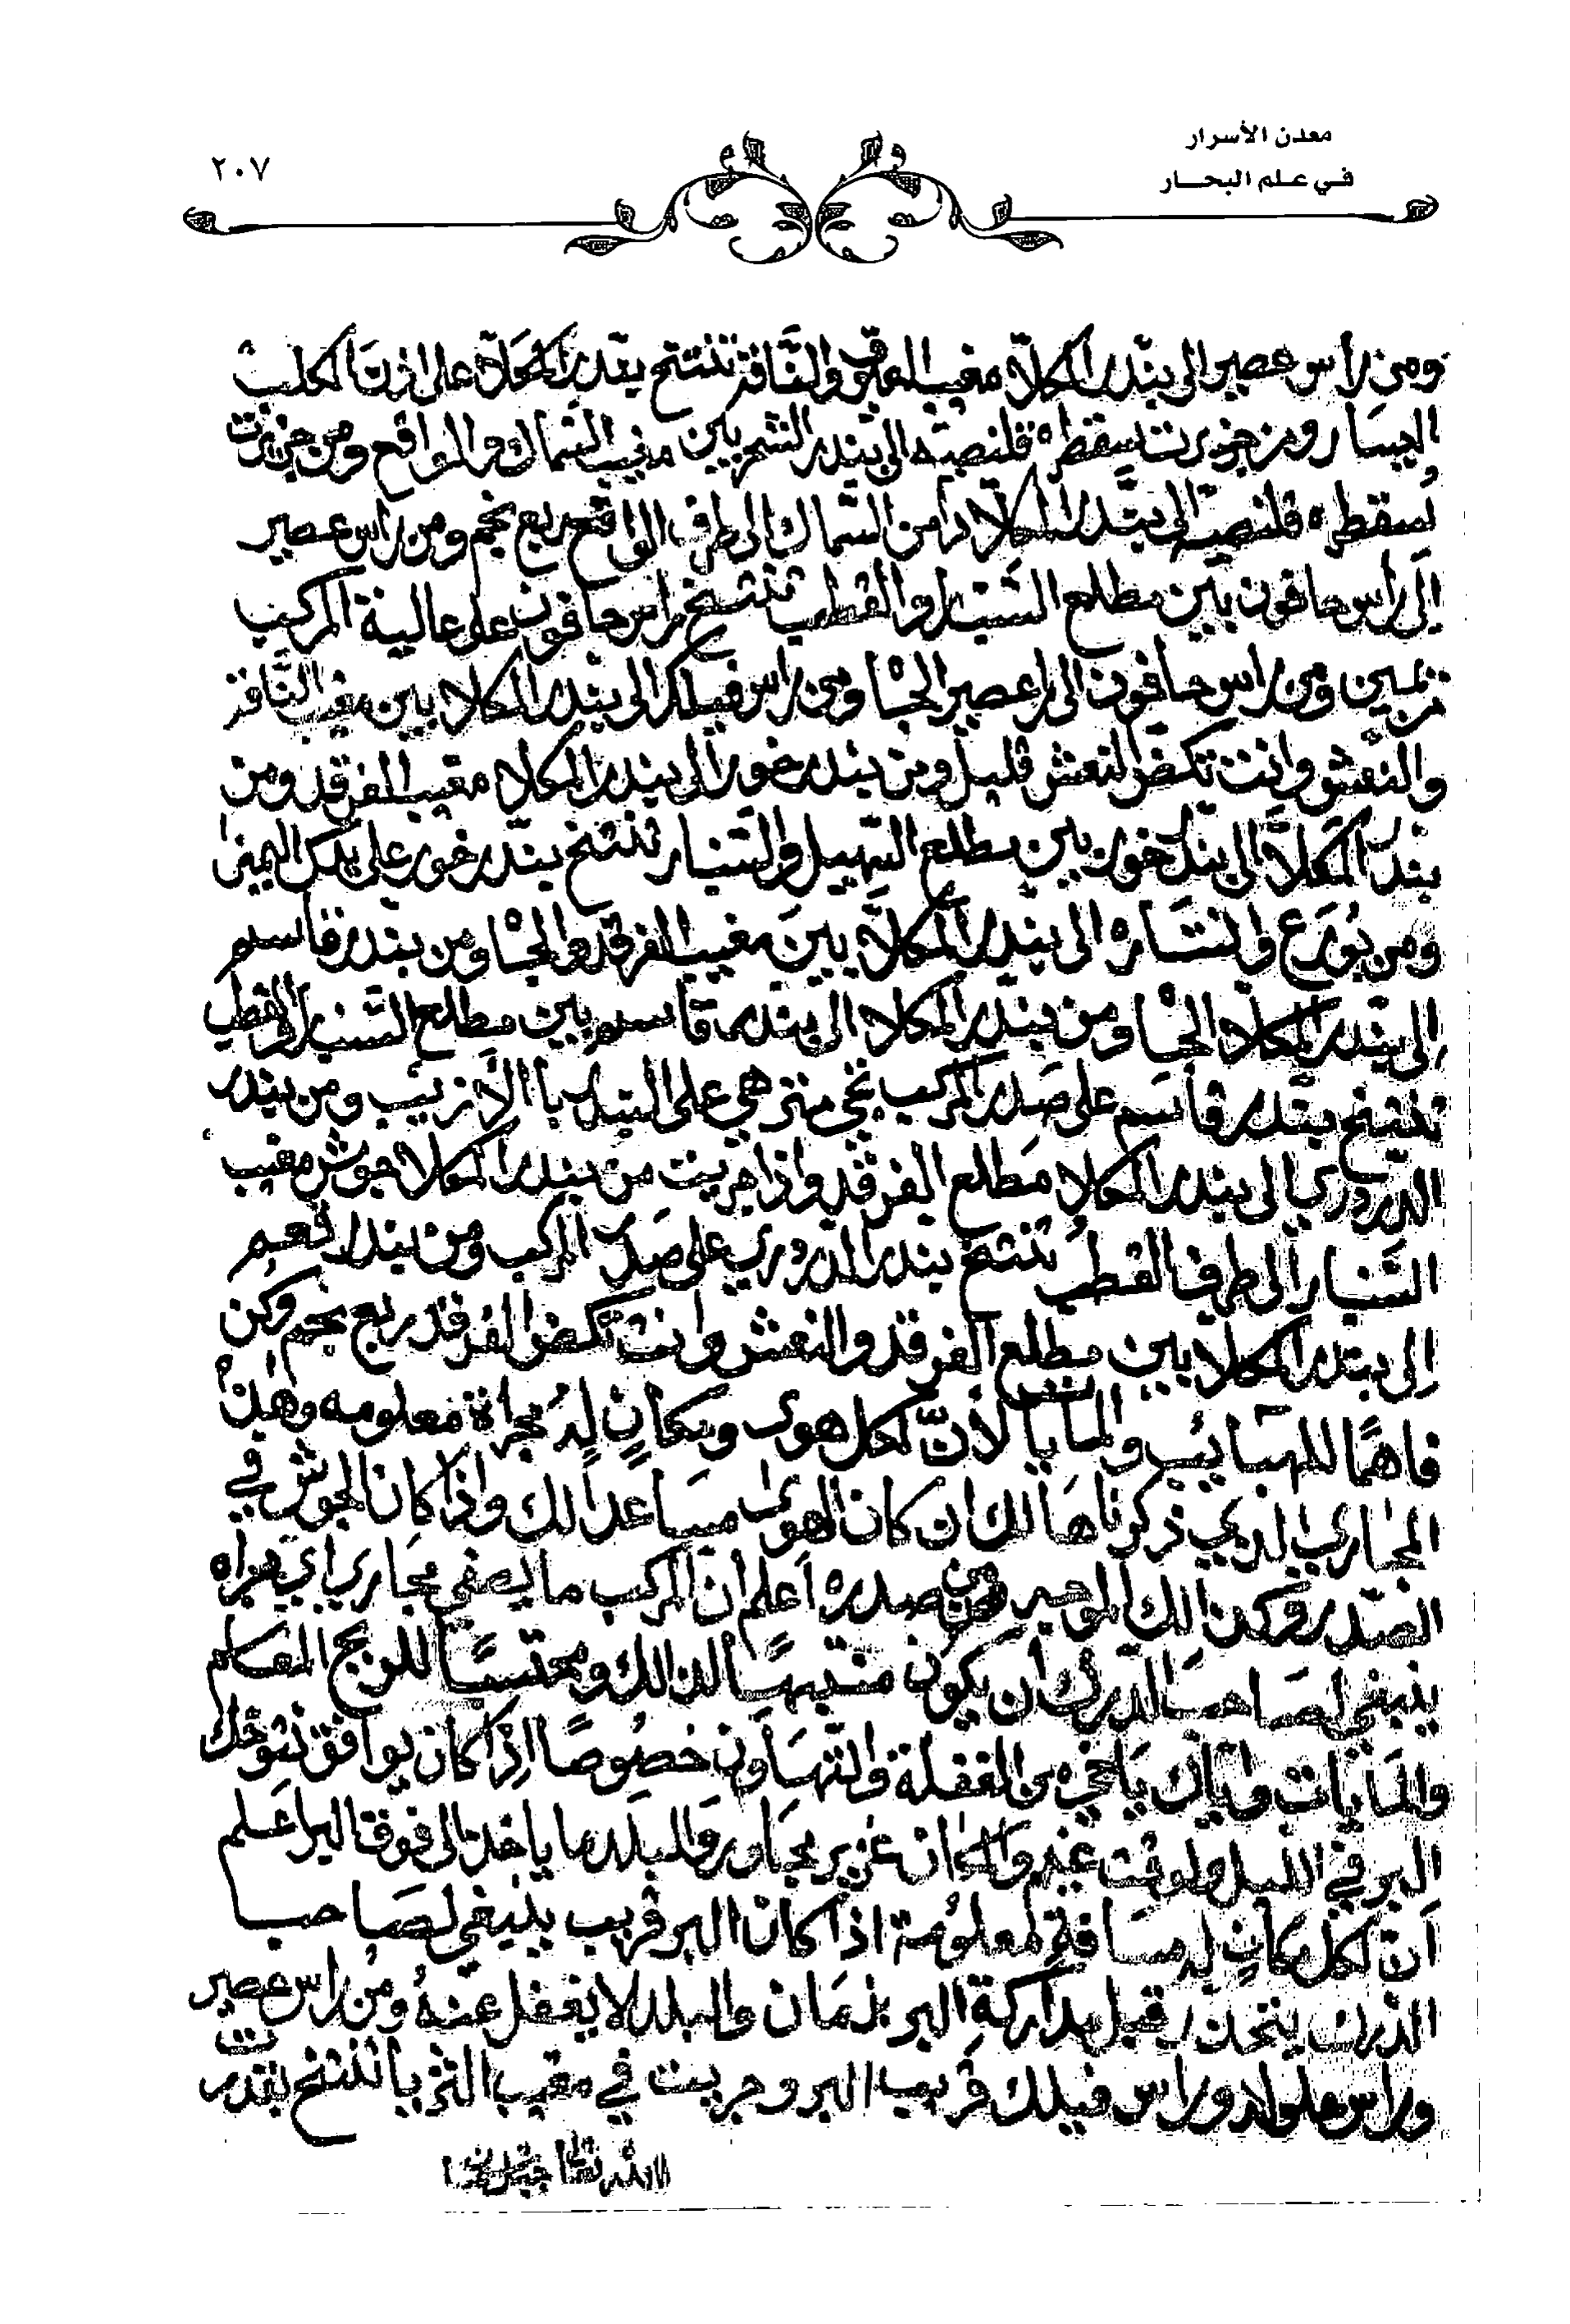 معدن الأسرار
في علم البحار
٢٠٧
ومن رأس عصير الى بندر المكلّا مغيب العيوق والناقة تنتخ بندر المكلّا على اذن الكلب
اليسار ومن جزيرت سقطره قلنصيه الى بندر الشحر بين مغيب السماك والواقع ومن جزيرت
سقطره قلنصيه الى بندر المكلا دامن السماك الى طرف الواقع ربع نجم ومن راس عصير
إلى راس حافون بين مطلع السنبار والقطب تنتخ راس حافون على عالية المركب
يمين ومن راس حافون الى را عصير الجاه ومن راس فيلك الى بندر المكلا بين مغيب الناقة
والنعش وانت تكض النعش قليل ومن بندر خور الى بندر المكلا مغيب الفرقد ومن
بندر المكلّا الى بندر خور بين مطلع السهيل والسنبار تنتخ بندر خور على يدك اليمنى
ومن بورع وانتاره الى بندر المكلّا بين مغيب الفرقد والجاه ومن بندر قاسم
إلى بندر المكلا الجاه ومن بندر المكلا الى بندر قاسم بين مطلع السنبار والقطب
تنتخ بندر قاسم على صدر المركب بالازيب ومن بندر
الدروري الى بندر المكلا مطلع الفرقد واذا جريت من بندر المكلا جوش مغيب
السنبار الى طرف القطب تنتخ بندر الدروري على صدر المركب ومن بندر
إلى بندر المكلا بين مطلع الفرقد والنعش وانت تكض الفرقد ربع نجم وكن
فاهمًا للهبائب والمايا لأنّ لكل هوى ومكانٍ له مجراة معلومه وهذه
المجاري الذي ذكرناها لك ان كان الهوى مساعدًا لك واذا كان الجوش في
الصدر وكذالك الموجه من صدره أعلم ان المركب ما يصفي مجاري اي مجراه
ينبغي لصاحب الدرك أن يكون منتبهًا لذالك ومحتسبًا للريح المقام
والمايات واياك يا اخي من الغفلة والتهاون خصوصًا إذا كان يوافق نتوخك
البر في الليل ولو قت غيم والمكان غزير بجاور والبلد ما ياخذ الى فوق البر اعلم
أن لكل مكانٍ له مسافةٍ معلومة اذا كان البر قريب ينبغي لصاحب
الدرك يتحذر قبل مداركة البر بزمان والبلد لا يغفل عنه ومن راس عصير
وراس علوله وراس فيلك قريب البر وجريت في مغيب الثريا تنتخ بندر